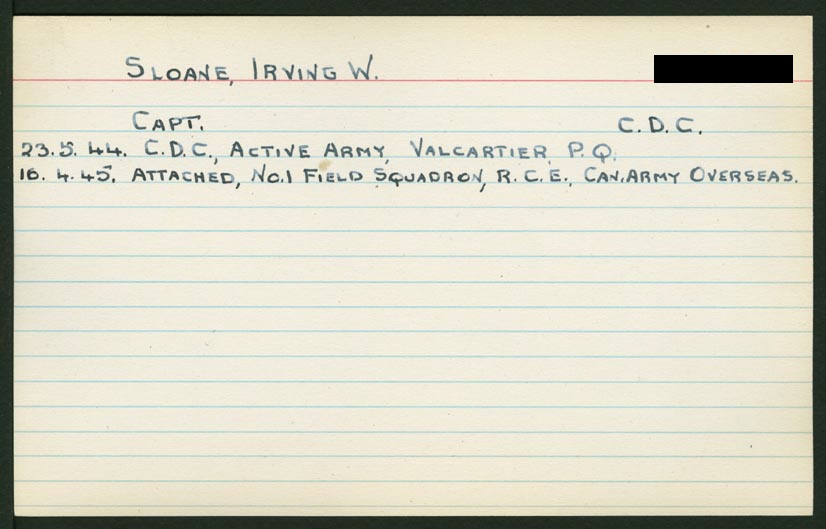 SLOANE, IRVING W.
CAPT. C.D.C.
23.5.44. C.D.C., ACTIVE ARMY, VALCARTIER, P.Q.
16.4.45. ATTACHED, NO.1 FIELD SQUADRON, R.C.E., CAN.ARMY OVERSEAS.